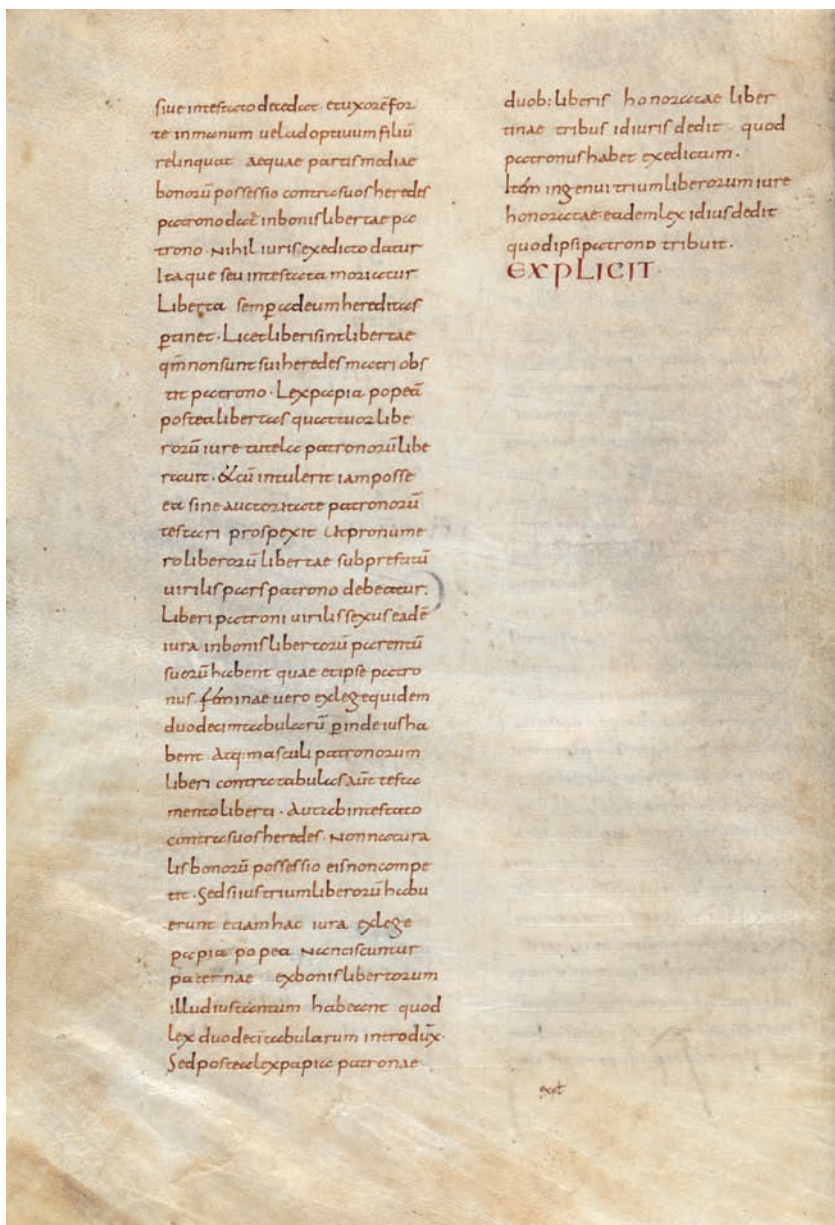 siue intestato decedat. et uxorē for
te in manum uel adoptiuum filiū
relinquat aequae partis mediae
bonorū possessio contra suos heredes
patrono dat̄ in bonis libertae pa
trono. Nihil iuris ex edicto datur
Itaque seu intestata moriatur
Liberta semp̄ ad eum hereditas
p̄tinet. Licet liberi sint libertae
qm̄ non sunt sui heredes matri obs
tit patrono. Lex papia popeā
postea libertas quattuor libe
rorū iure tutela patronorū libe
rauit. & cū intulerit iam posse
ea sine auctoritate patronorū
testari prospexit Ut pro nume
ro liberorū libertae sub prefatū
uirilis pars patrono debeatur.
Liberi patroni uirilis sexus eadē
iura in bonis libertorū parentū
suorū habent quae et ipse patro
nus. feminae uero ex lege quidem
duodecim tabularū p̄inde ius ha
bent. Atq: masculi patronorum
liberi contra tabulas aūt testa
mento liberti. Aut ab intestato
contra suos heredes. Non natura
lis bonorū possessio eis non compe
tit. Sed si ius trium liberorū habu
erunt etiam hac iura ex lege
papia popea nanciscuntur
paternae ex bonis libertorum
illud ius tantum habeant quod
lex duodecī tabularum introdux̄.
Sed postea lex papia patronae
duob: liberis honoratae liber
tinae tribus id iuris dedit quod
patronus habet ex edictum.
Item ingenui trium liberorum iure
honoratae eadem lex id ius dedit
quod ipsi patrono tribuit.
EXPLICIT.